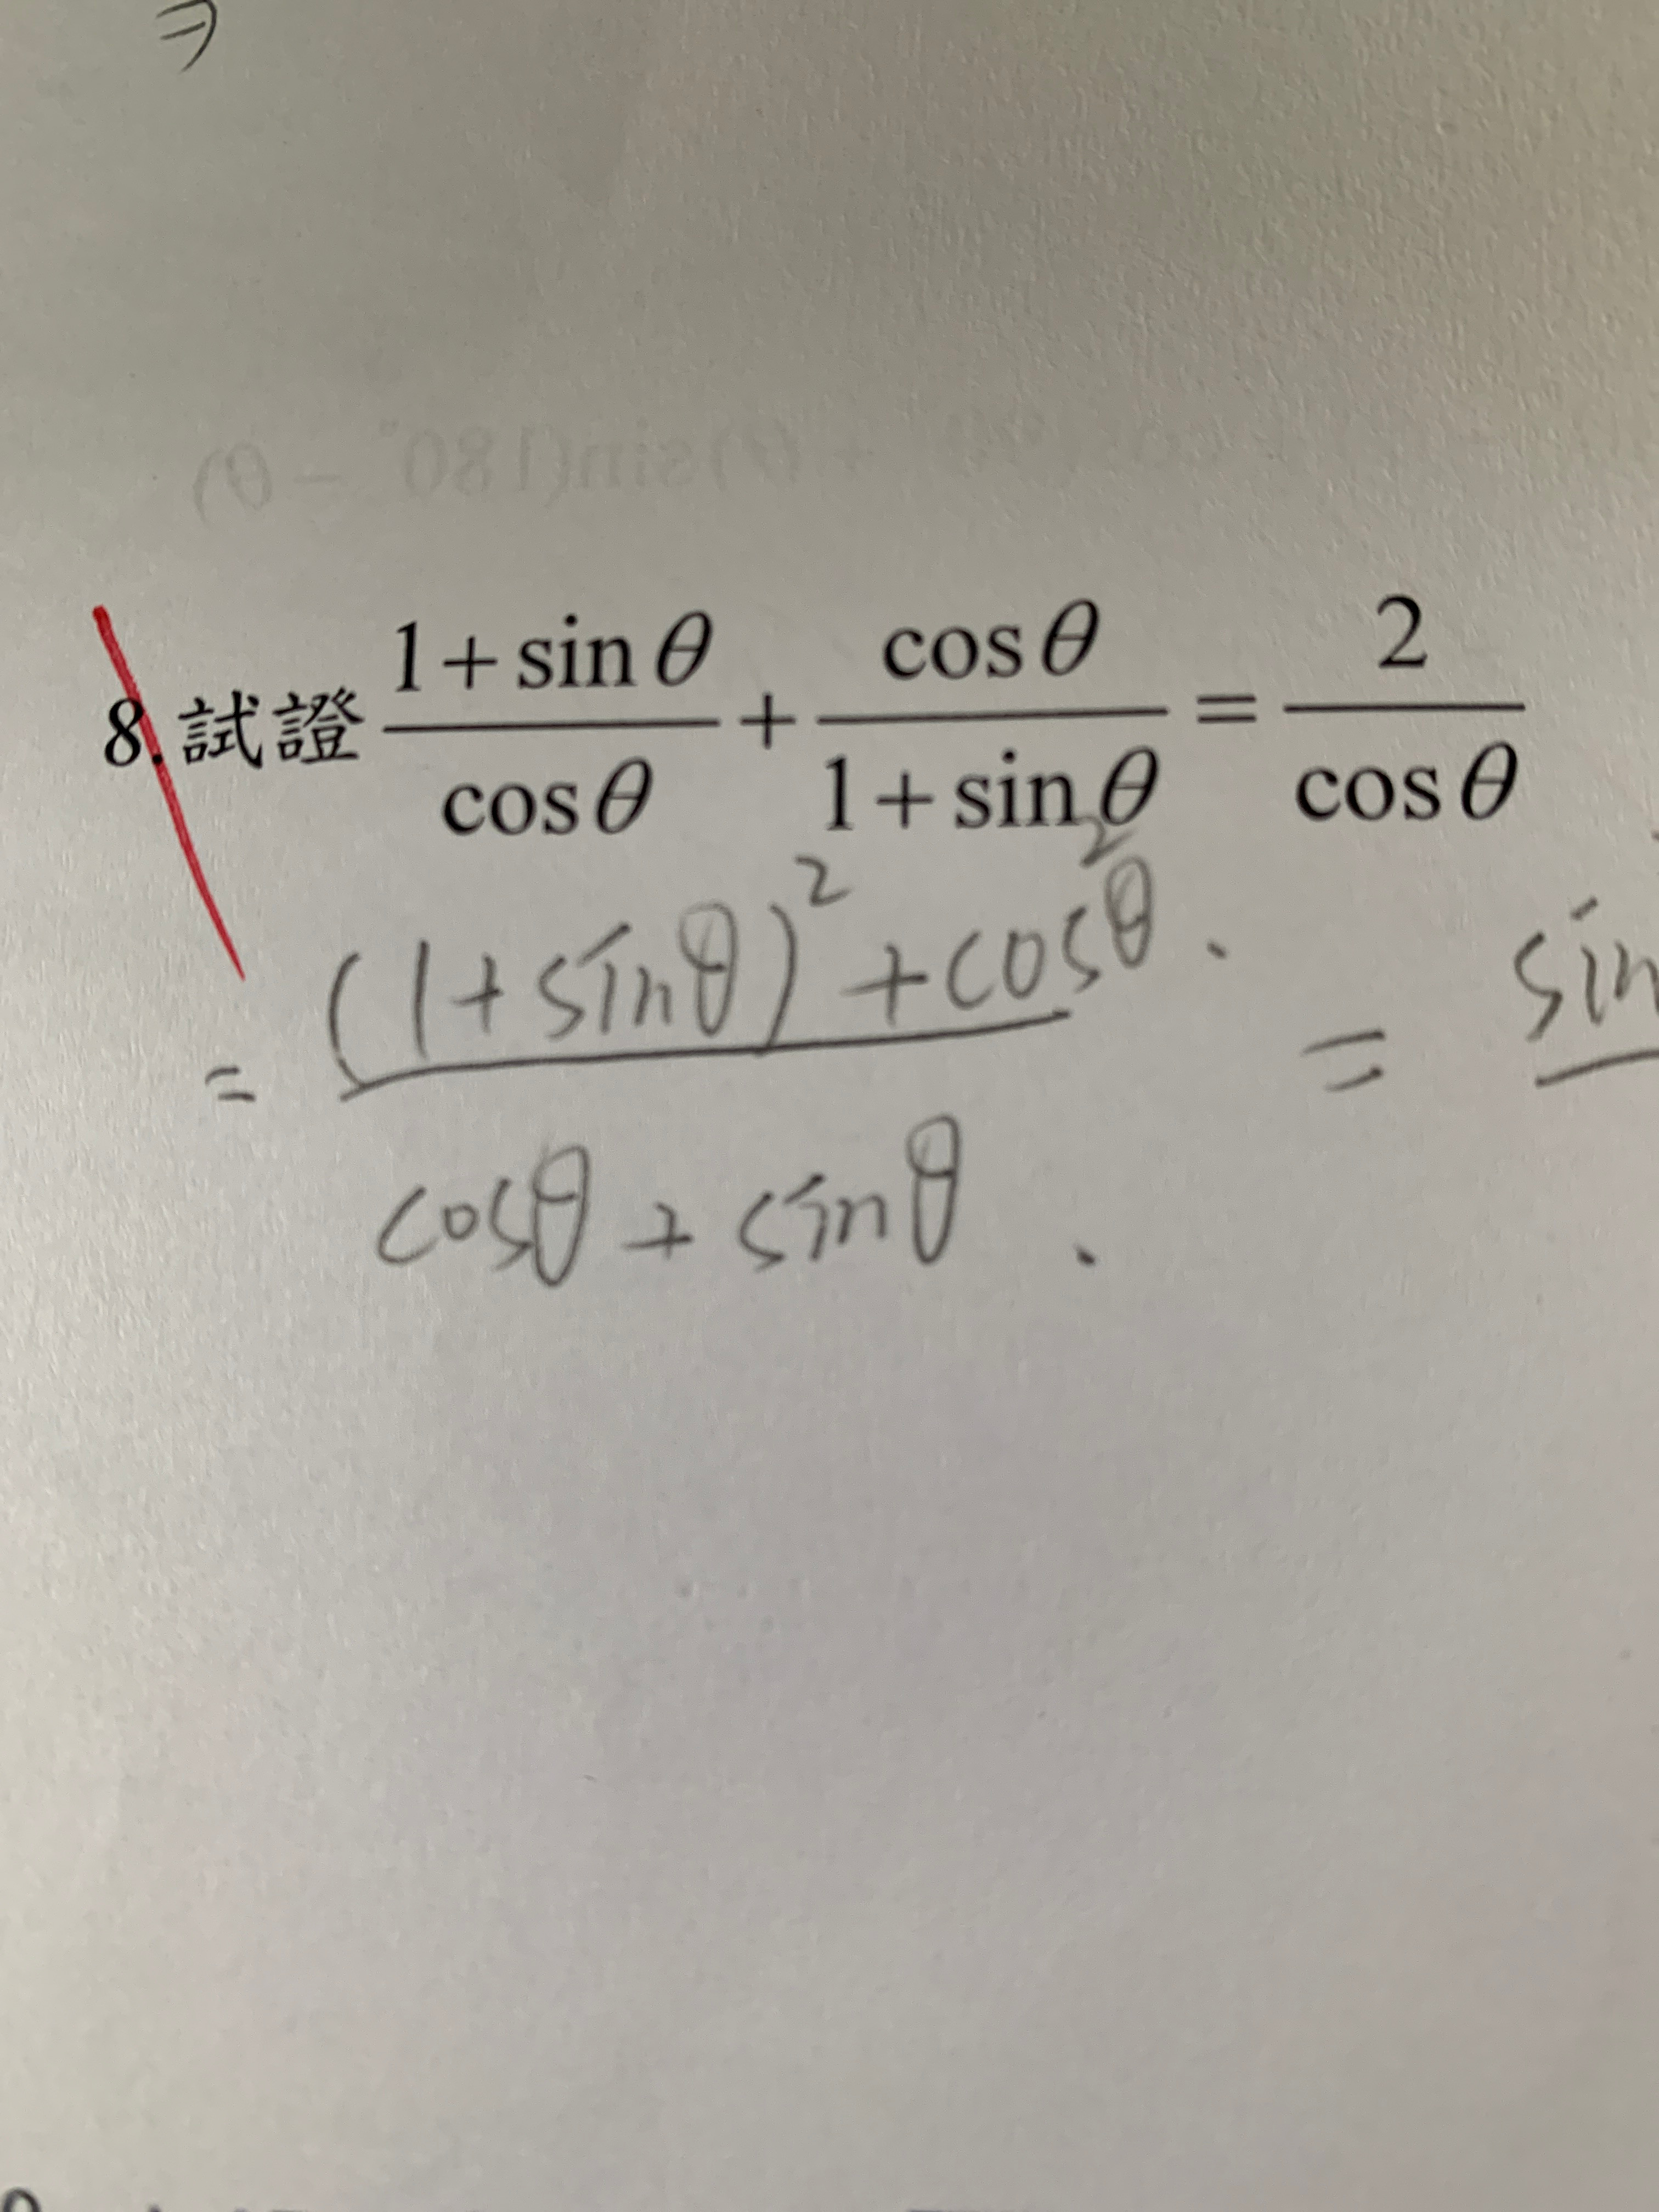 8. 試證 (1+sinθ)/cosθ + cosθ/(1+sinθ) = 2/cosθ
= ((1+sinθ)² + cos²θ)/(cosθ + sinθ) = sin